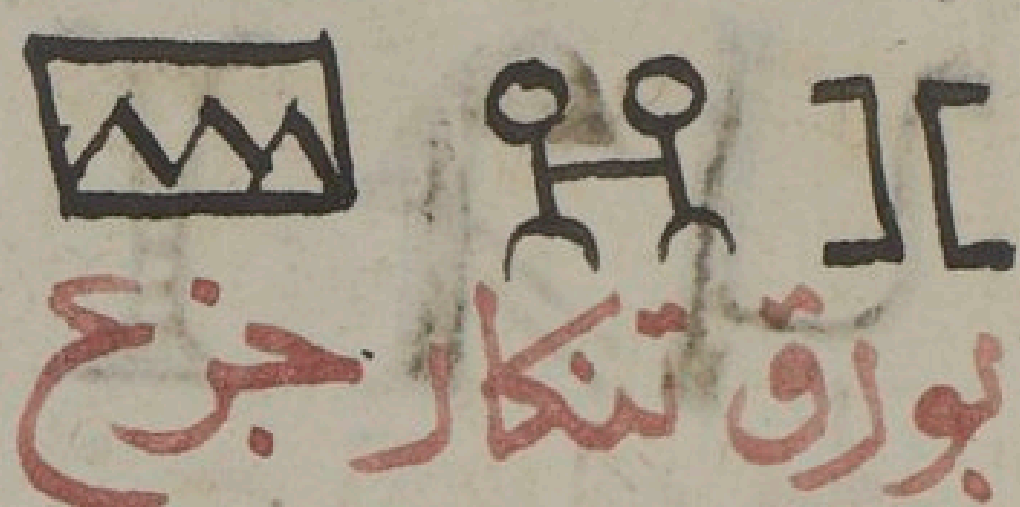 بورق تنكار جزع